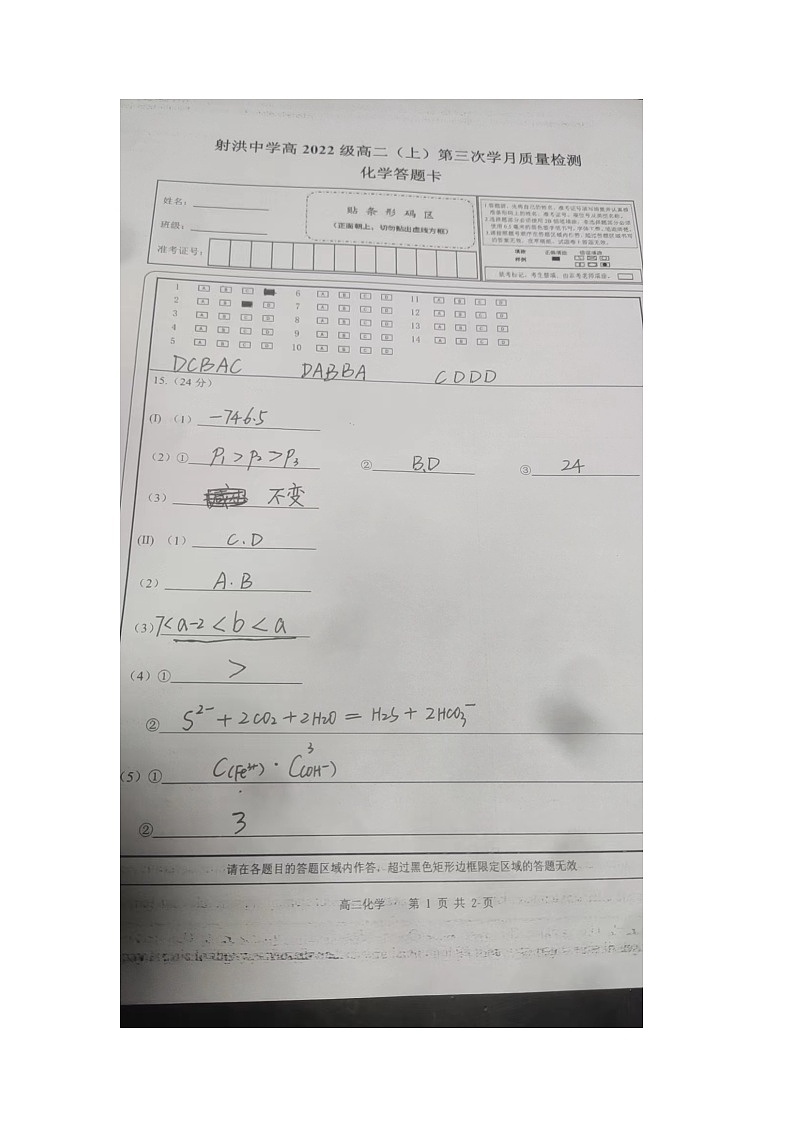 射洪中学高 2022 级高二（上）第三次学月质量检测
化学答题卡
姓名：
班级：
准考证号：
贴 条 形 码 区
（正面朝上，切勿贴出虚线方框）
填涂样例 正确填涂 错误填涂
缺考标记，考生禁填，由监考老师填涂。
1 A B C 6 A B C D 11 A B C D
2 A B D 7 A B C D 12 A B C D
3 A B C D 8 A B C D 13 A B C D
4 A B C D 9 A B C D 14 A B C D
5 A B C D 10 A B C D
DCBAC DABBA CDDD
15.（24 分）
(I) （1） -746.5
（2）① P₁ > P₂ > P₃ ② B、D ③ 24
（3） 不变
(II) （1） C、D
（2） A、B
（3） 7< a-2 < b < a
（4）① >
② S²⁻ + 2CO₂ + 2H₂O = H₂S + 2HCO₃⁻
（5）① C(Fe³⁺)·C³(OH⁻)
② 3
请在各题目的答题区域内作答，超过黑色矩形边框限定区域的答题无效
高二化学 第 1 页 共 2 页